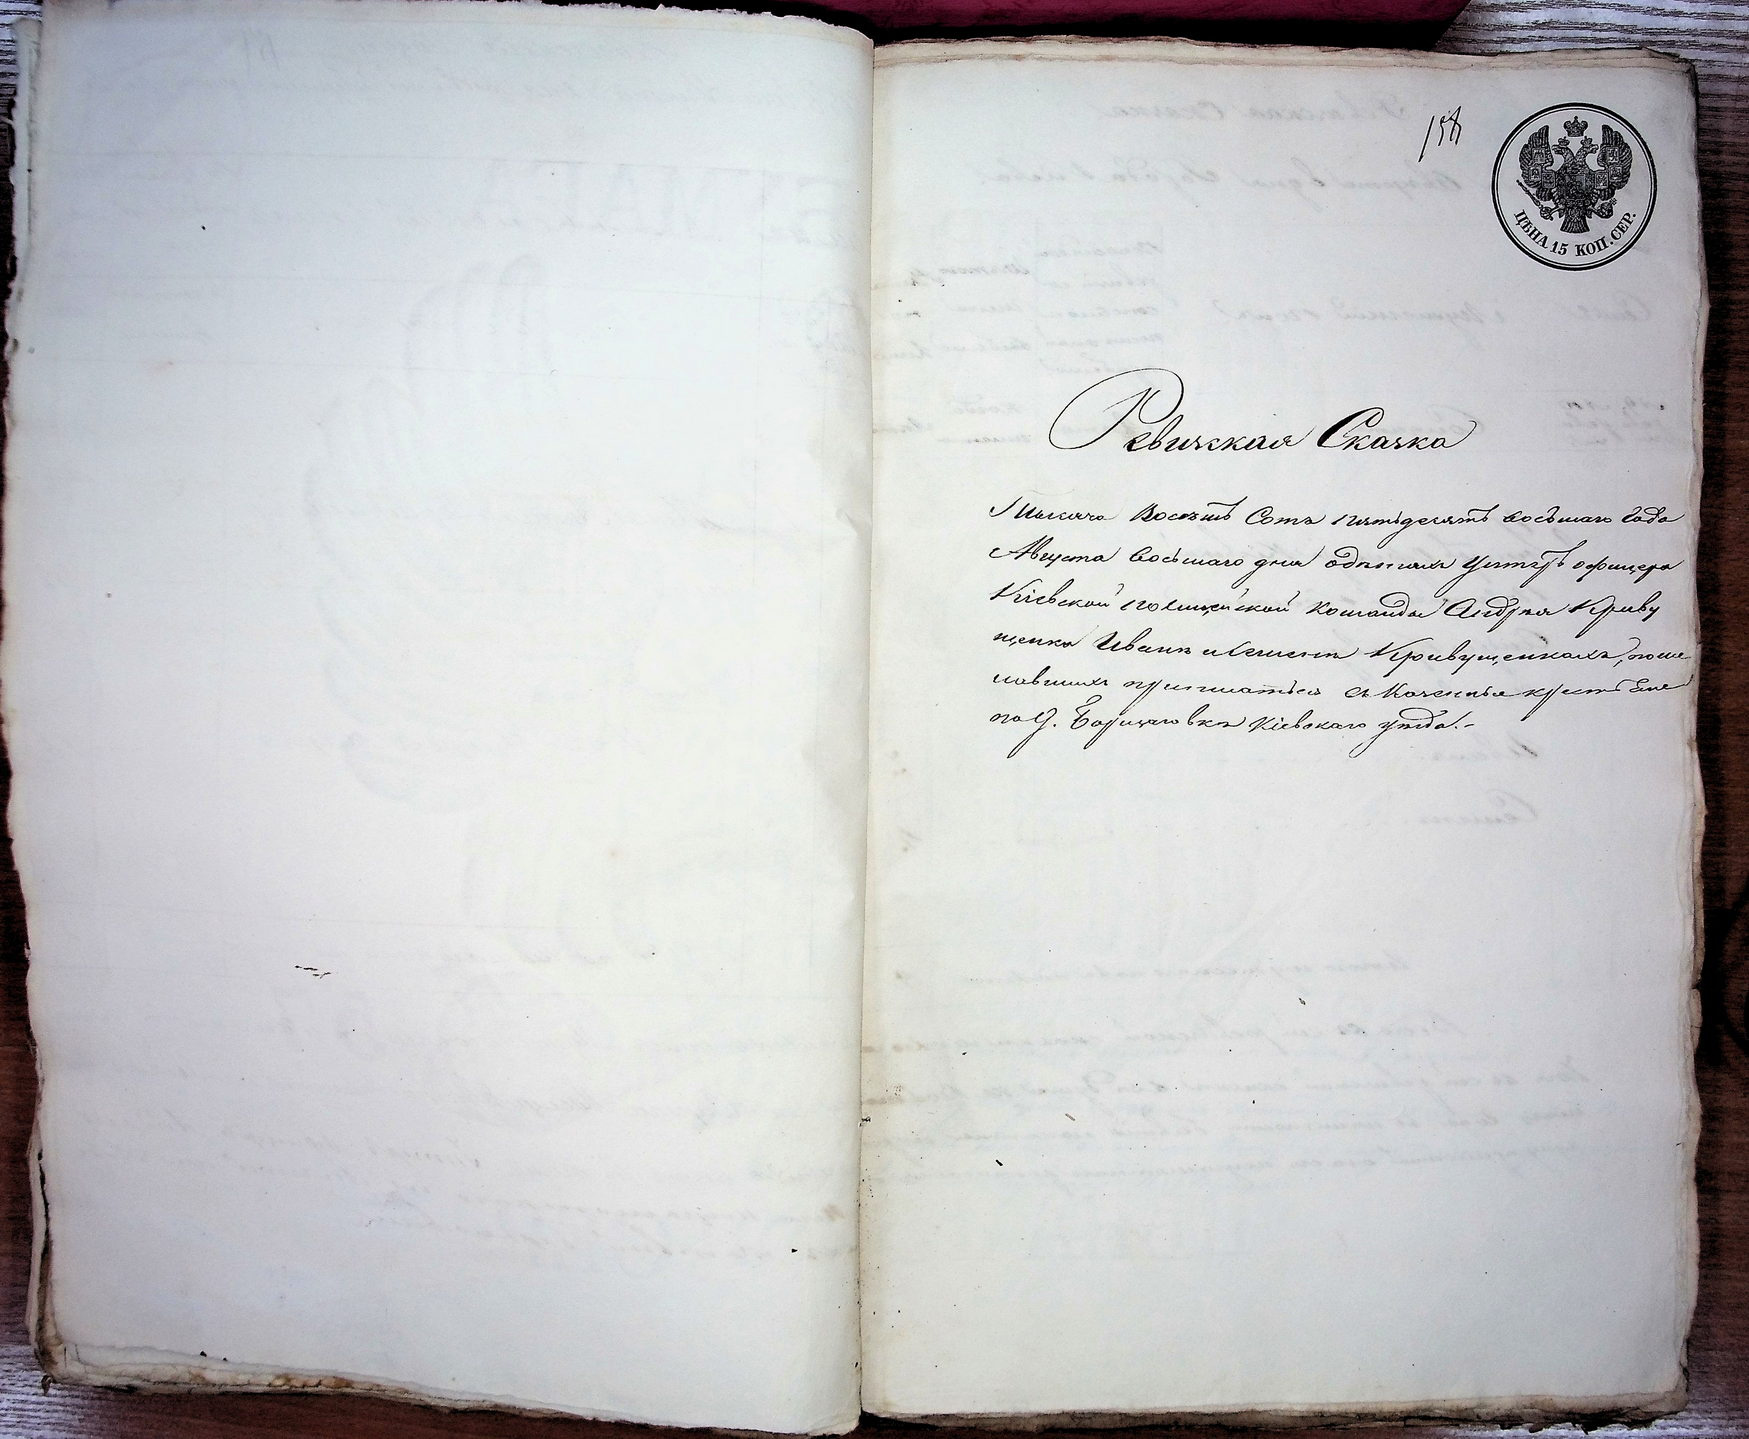 158
ЦѢНА 15 КОП. СЕР.
Ревизская Сказка
Тысяча Восемь Сотъ пятьдесятъ восьмаго года
Августа восьмаго дня о дѣтяхъ Унтеръ офицера
Кіевской полицейской команды Андрея Криву
щенка Иванѣ и Семенѣ Кривущенкахъ, поже
лавшихъ приписаться къ казеннымъ крестьянам
по д. Борщаговкѣ Кіевскаго уѣзда.-